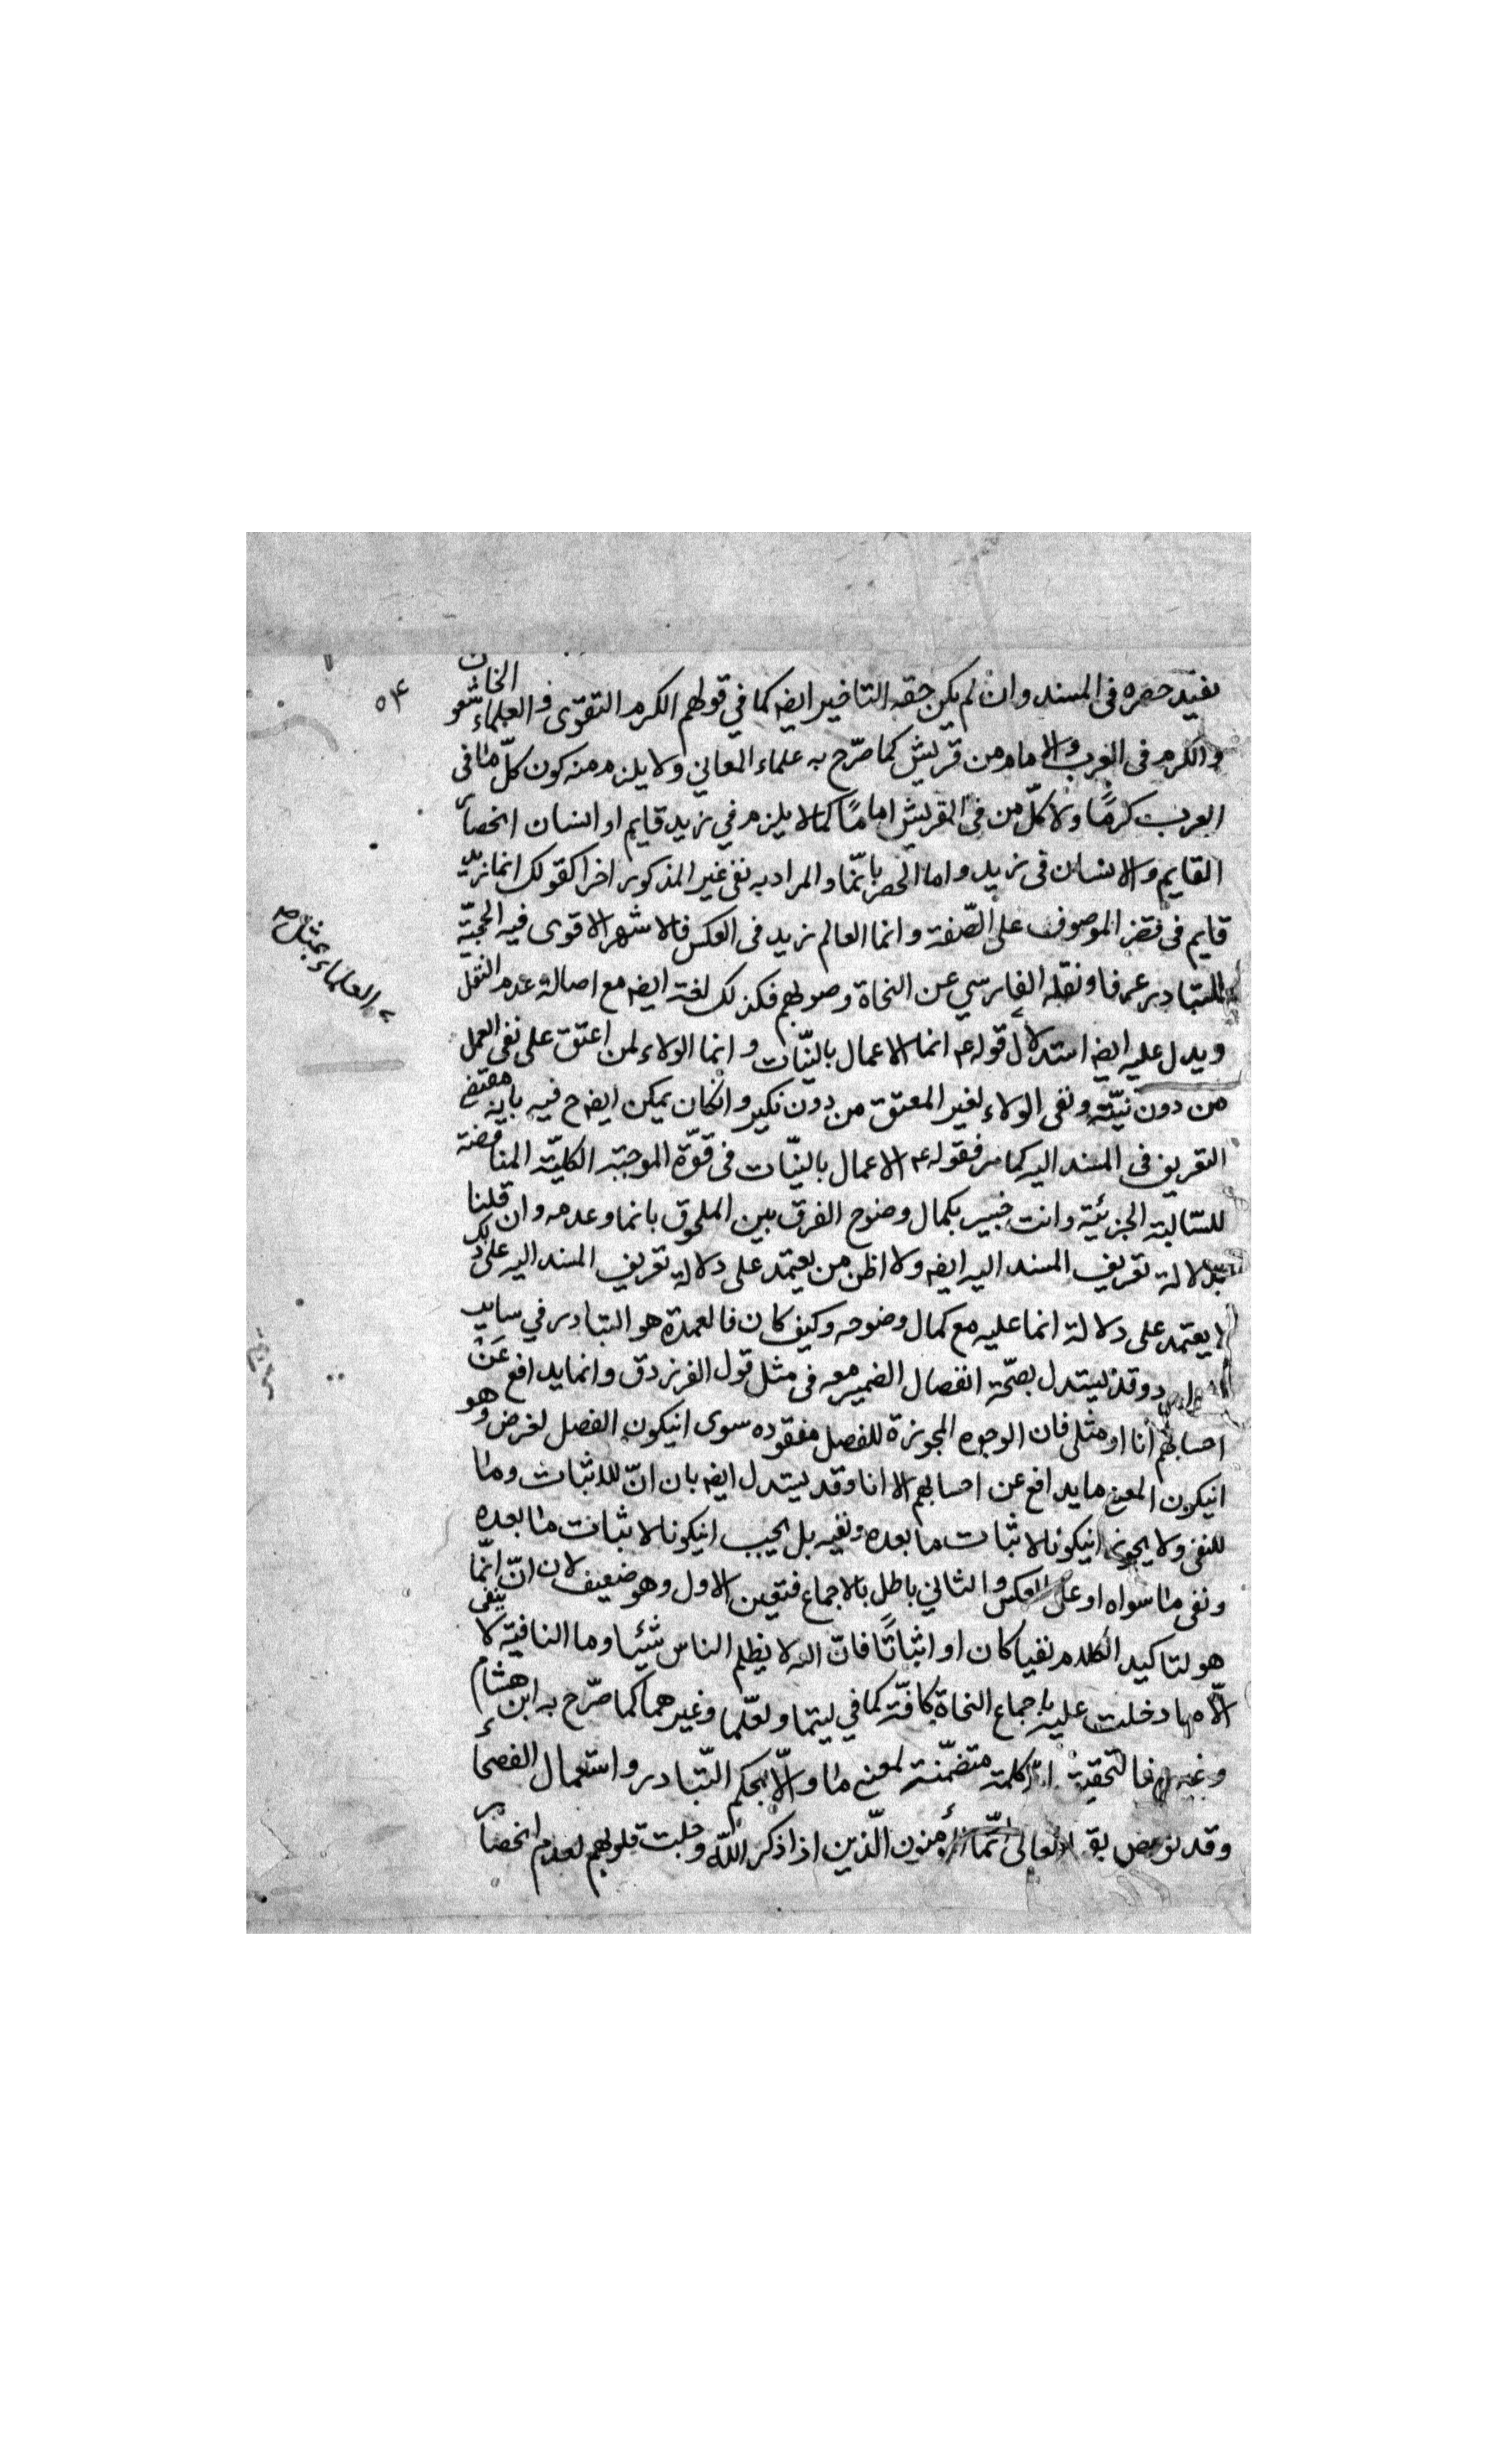 يفيد حصره فى المسند وان لم يكن حقه التاخير ايضه كما في قولهم الكرم التقوى و العلماء الخاشعون
والكرم فى العرب والامام من قريش كما صرّح به علماء المعاني ولا يلزم منه كون كلّ ما فى
العرب كرمًا ولا كلّ من فى القريش امامًا كما لا يلزم في زيد قايم او انسان انحصار
القايم والانسان فى زيد واما الحصر بانّما والمراد به نفى غير المذكور اخرا كقولك انما زيد
قايم فى قصر الموصوف على الصّفة وانما العالم زيد فى العكس فالاشهر الاقوى فيه الحجيّة
للتبادر عرفا ونقله الفارسي عن النحاة وصوبهم فكذلك لغة ايضه مع اصالة عدم النقل
ويدل عليه ايضه استدلال قوله ع انما الاعمال بالنيّات و انما الولاء لمن اعتق على نفى العمل
من دون نيّة ونفى الولاء لغير المعتق من دون نكير وانكان يمكن ايضه ح فيه بانه مقتضى
التعريف فى المسند اليه كما مر فقوله ع الاعمال بالنيّات فى قوّة الموجبة الكليّة المناقضة
للسّالبة الجزئية وانت خبير بكمال وضوح الفرق بين الملحوق بانما وعدمه وان قلنا
بدلالة تعريف المسند اليه ايضه ولا اظن من يعتمد على دلالة تعريف المسند اليه على ذلك
لا يعتمد على دلالة انما عليه مع كمال وضوحه وكيف كان فالعمدة هو التبادر في ساير
وقد يستدل بصحّة انفصال الضمير معه فى مثل قول الفرزدق وانما يدافع عَنْ
احسابهم أنا او مثلى فان الوجوه المجوزة للفصل مفقوده سوى انيكون الفصل لغرض وهو
انيكون المعنى ما يدافع عن احسابهم الا انا وقد يستدل ايضه بان انّ للاثبات وما
للنفى ولا يجوز انيكونا لاثبات ما بعده ونفيه بل يجب انيكونا لاثبات ما بعده
ونفى ما سواه او على العكس والثاني باطل بالاجماع فتعين الاول وهو ضعيف لان انّ انّما
هو لتاكيد الكلام نفيا كان او اثباتًا فانّ الله لا يظلم الناس شيئا وما النافية لا ينفى
الّا ما دخلت عليه باجماع النحاة كافّة كما في ليتما ولعلّما وغيرهما كما صرّح به ابن هشام
وغيره فالتحقيق انّ كلمة متضمّنة لمعنى ما والّا بحكم التّبادر واستعمال الفصحاء
وقد نوقض بقوله تعالى انّما المؤمنون الّذين اذا ذكر اللّه وجلت قلوبهم لعدم انحصار
٥٤
العلماء بمثله